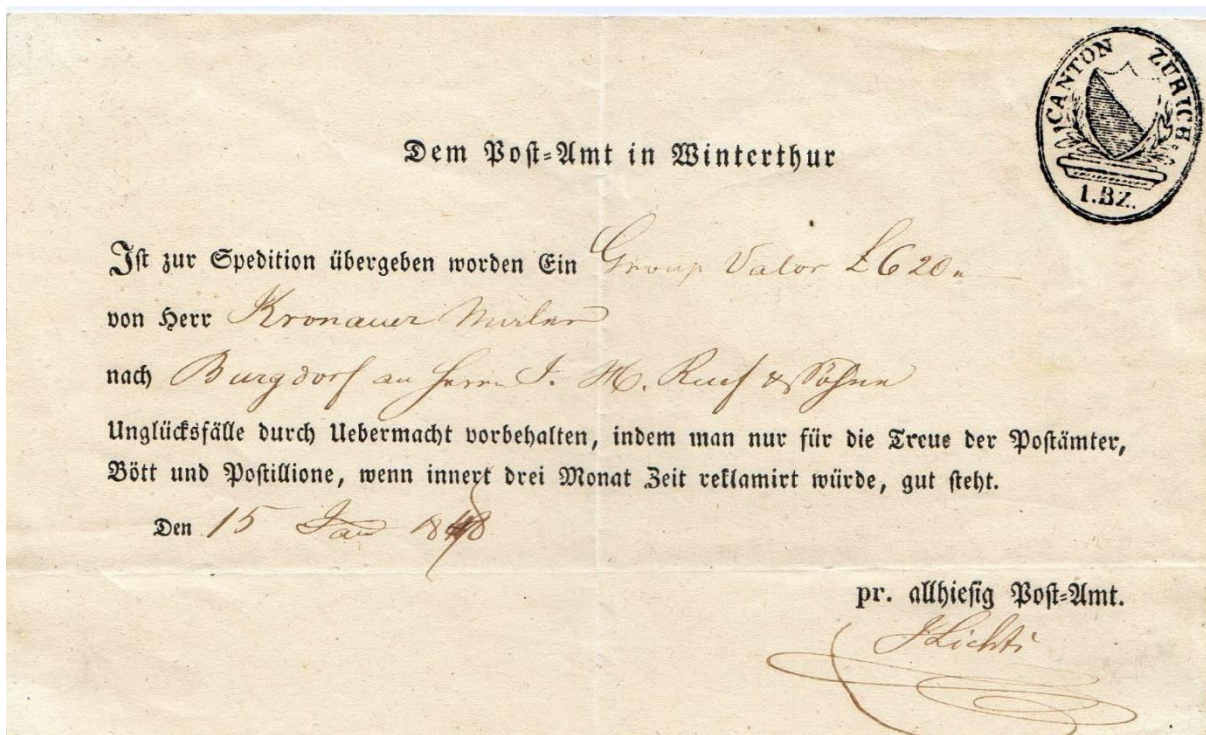 CANTON ZÜRICH.
1.BZ.
Dem Post-Amt in Winterthur
Ist zur Spedition übergeben worden Ein Group Valor £ 620
von Herr Kronauer
nach Burgdorf an Herrn J. M. Ruef & Söhne
Unglücksfälle durch Uebermacht vorbehalten, indem man nur für die Treue der Postämter,
Bött und Postillione, wenn innert drei Monat Zeit reklamirt würde, gut steht.
Den 15 Jan 1848
pr. allhiesig Post-Amt.
JLichti